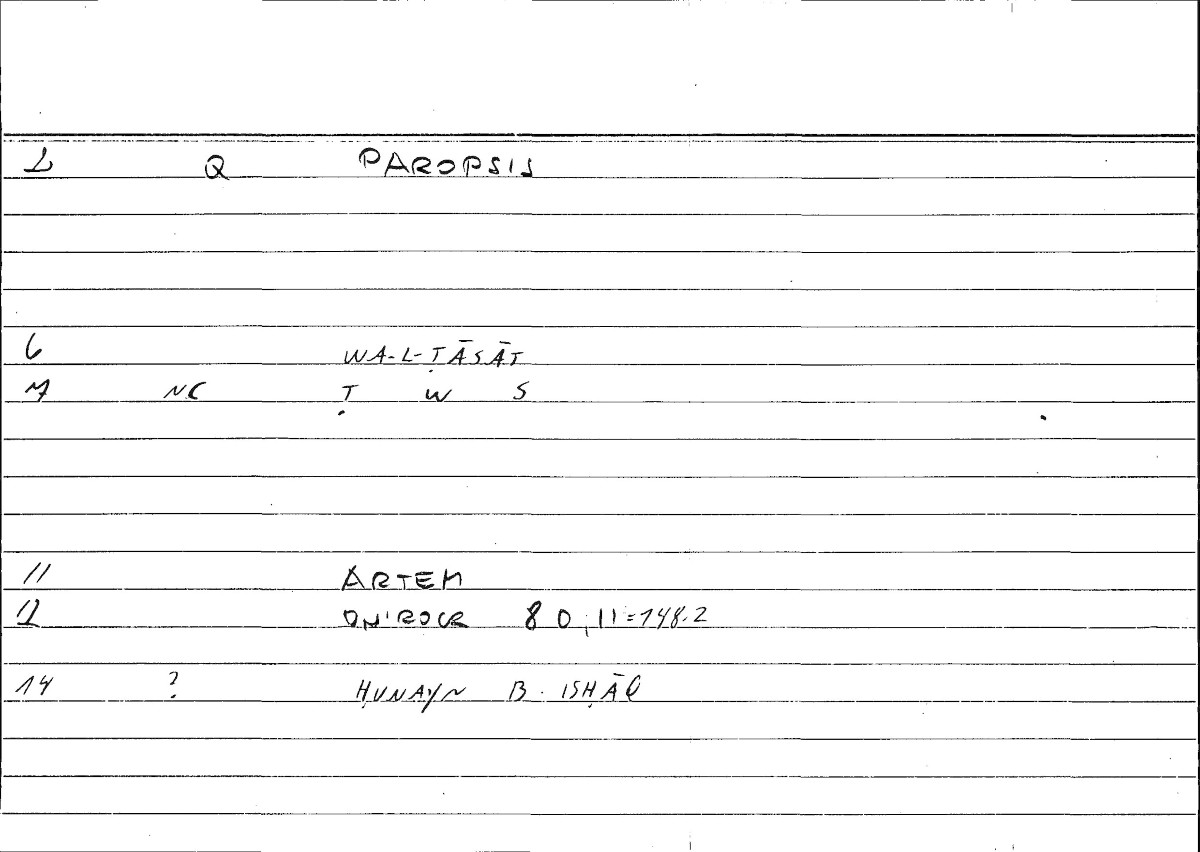 1 Q PAROPSIS
6 WA-L-ṬĀSĀT
7 NC Ṭ W S
11 ARTEM
12 ONIROCR 80,11=148.2
14 ? ḤUNAYN B. ISḤĀQ